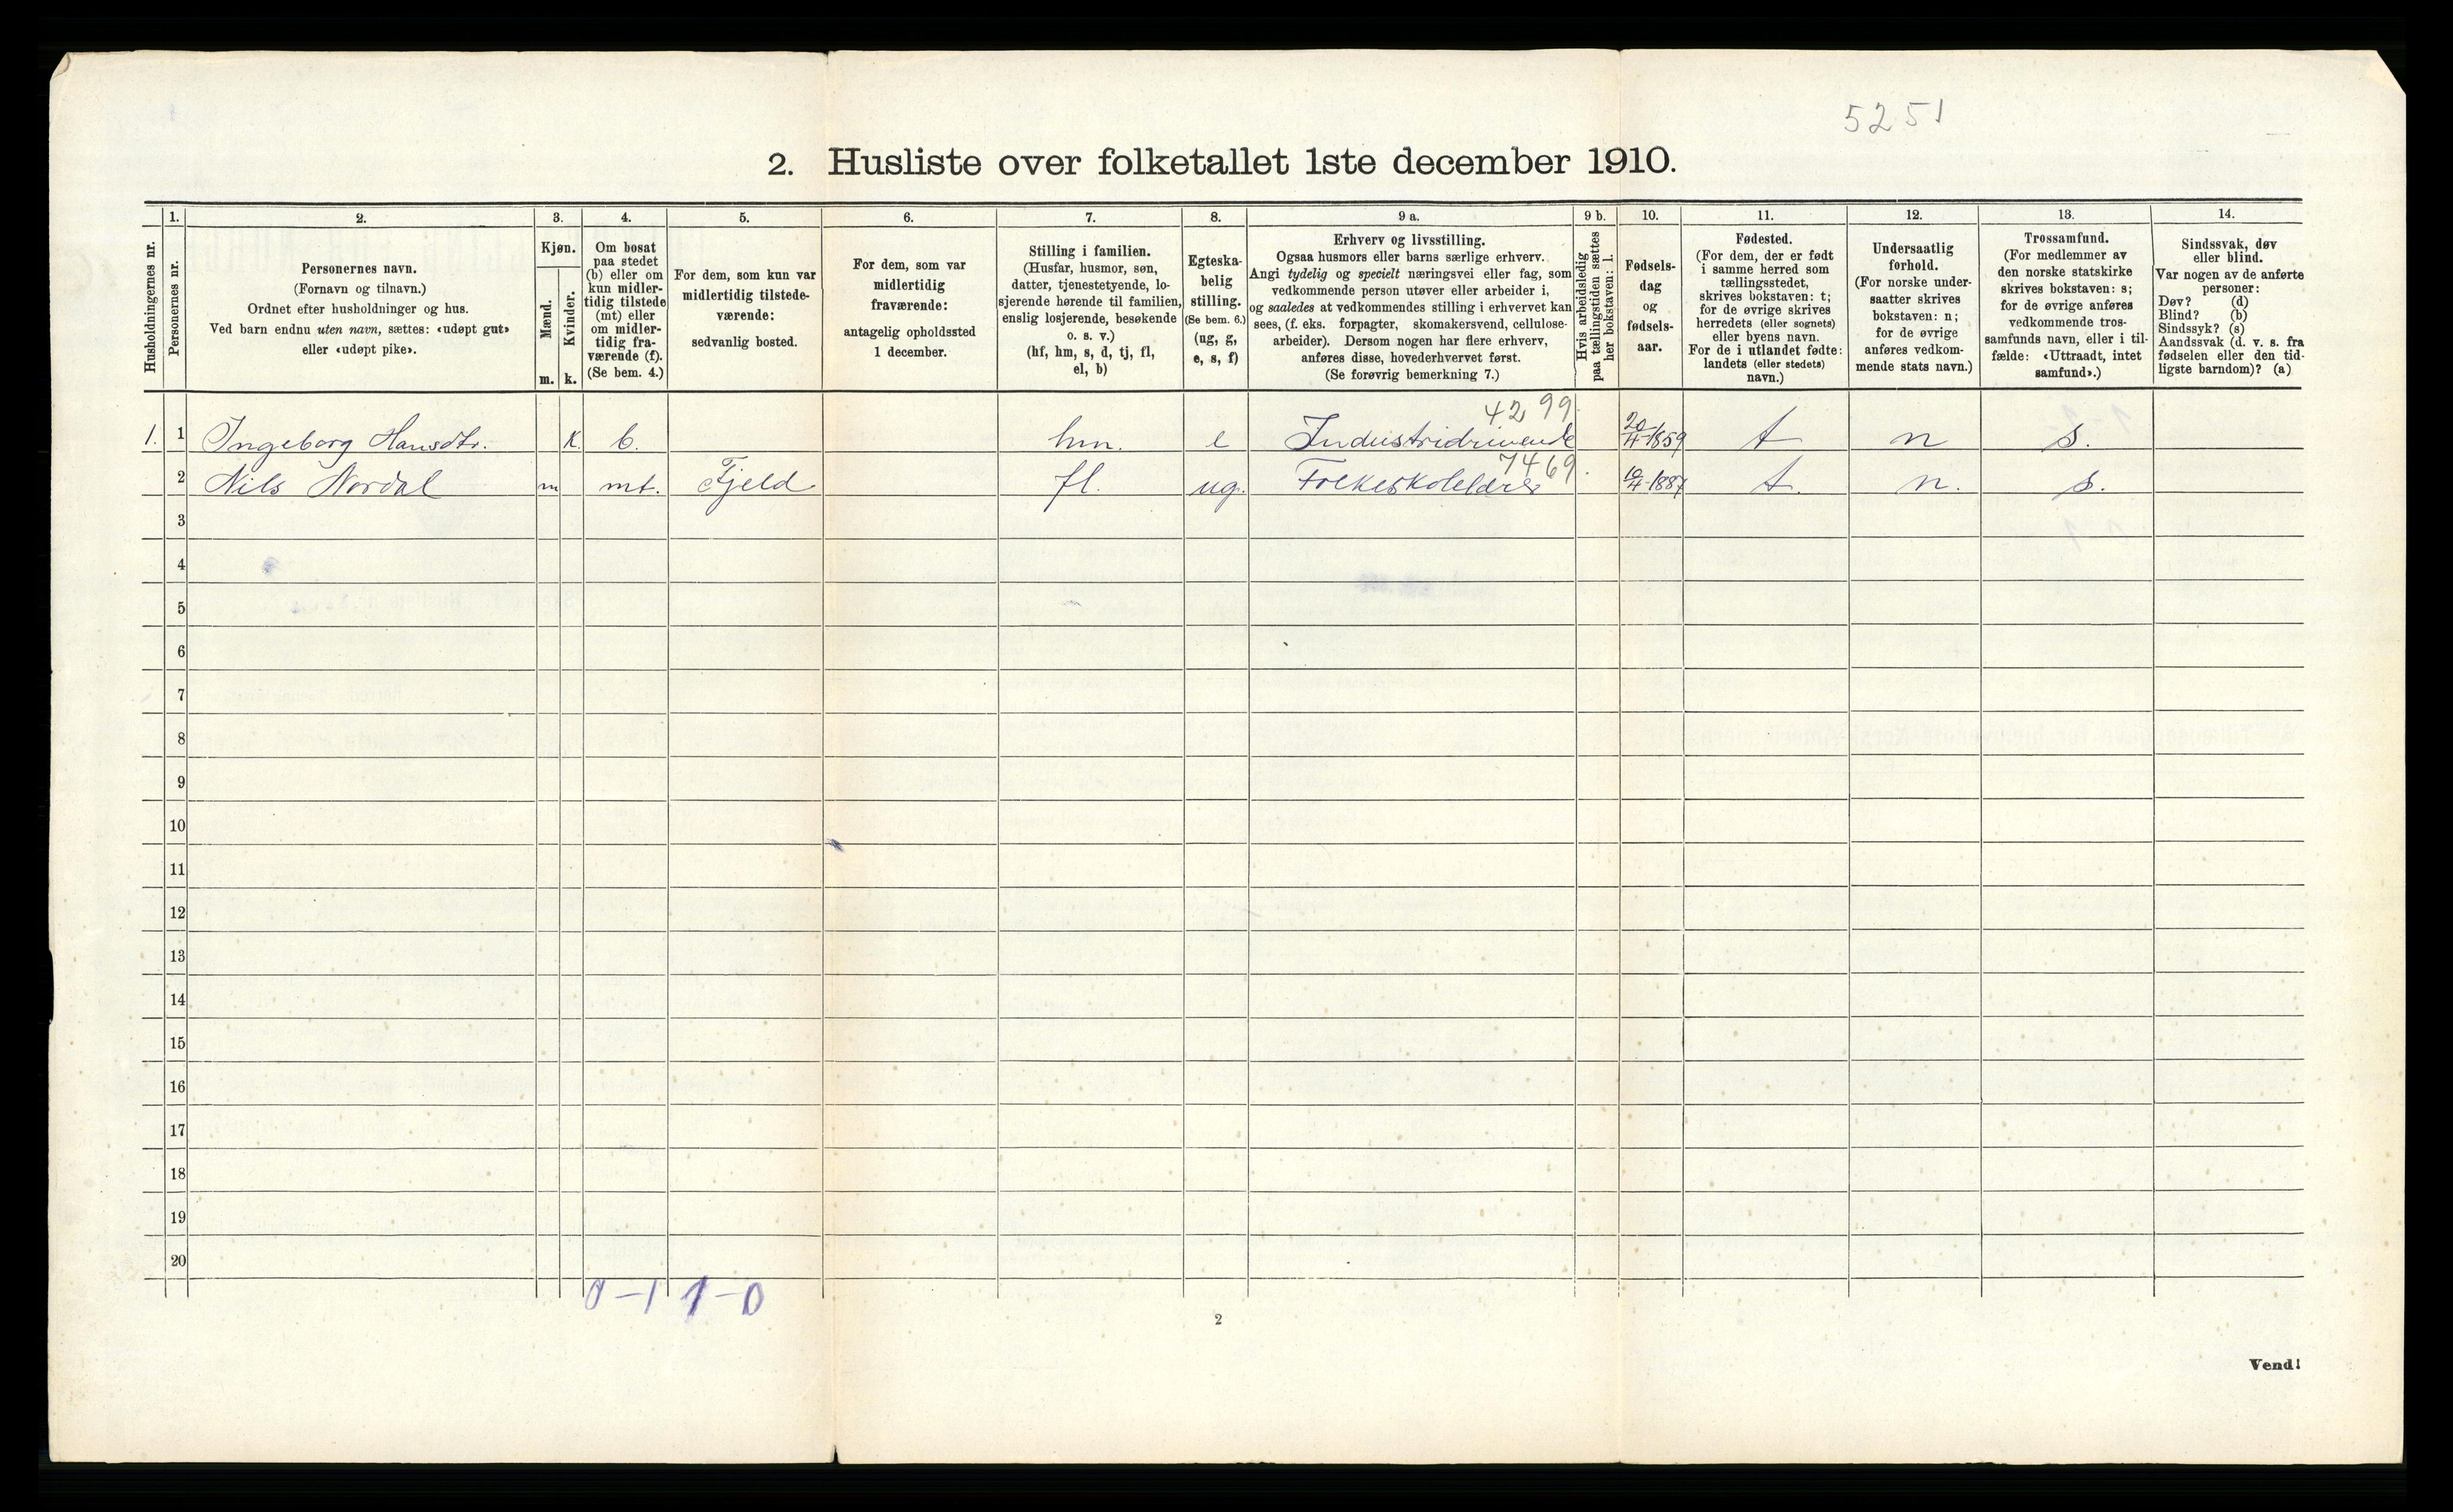 5251
2. Husliste over folketallet 1ste december 1910.
Husholdningernes nr.
1.
Personernes nr.
2.
Personernes navn.
(Fornavn og tilnavn.)
Ordnet efter husholdninger og hus.
Ved barn endnu uten navn, sættes: «udøpt gut»
eller «udøpt pike».
3.
Kjøn.
Mænd.
m.
Kvinder.
k.
4.
Om bosat
paa stedet
(b) eller om
kun midler-
tidig tilstede
(mt) eller
om midler-
tidig fra-
værende (f).
(Se bem. 4.)
5.
For dem, som kun var
midlertidig tilstede-
værende:
sedvanlig bosted.
6.
For dem, som var
midlertidig
fraværende:
antagelig opholdssted
1 december.
7.
Stilling i familien.
(Husfar, husmor, søn,
datter, tjenestetyende, lo-
sjerende hørende til familien,
enslig losjerende, besøkende
o. s. v.)
(hf, hm, s, d, tj, fl,
el, b)
8.
Egteska-
belig
stilling.
(Se bem. 6.)
(ug, g,
e, s, f)
9 a.
Erhverv og livsstilling.
Ogsaa husmors eller barns særlige erhverv.
Angi tydelig og specielt næringsvei eller fag, som
vedkommende person utøver eller arbeider i,
og saaledes at vedkommendes stilling i erhvervet kan
sees, (f. eks. forpagter, skomakersvend, cellulose-
arbeider). Dersom nogen har flere erhverv,
anføres disse, hovederhvervet først.
(Se forøvrig bemerkning 7.)
9 b.
Hvis arbeidsledig
paa tællingstiden sættes
her bokstaven: l.
10.
Fødsels-
dag
og
fødsels-
aar.
11.
Fødested.
(For dem, der er født
i samme herred som
tællingsstedet,
skrives bokstaven: t;
for de øvrige skrives
herredets (eller sognets)
eller byens navn.
For de i utlandet fødte:
landets (eller stedets)
navn.)
12.
Undersaatlig
forhold.
(For norske under-
saatter skrives
bokstaven: n;
for de øvrige
anføres vedkom-
mende stats navn.)
13.
Trossamfund.
(For medlemmer av
den norske statskirke
skrives bokstaven: s;
for de øvrige anføres
vedkommende tros-
samfunds navn, eller i til-
fælde: «Uttraadt, intet
samfund».)
14.
Sindssvak, døv
eller blind.
Var nogen av de anførte
personer:
Døv? (d)
Blind? (b)
Sindssyk? (s)
Aandssvak (d. v. s. fra
fødselen eller den tid-
ligste barndom)? (a)
4299
1. 1 Ingeborg Hansdtr. k. b. hm. e Industridrivende 20/11-1859 t n s.
7469
2 Nils Nordal m mt. Fjeld fl. ug. Folkeskolelærer t. n. s.
3
4
5
6
7
8
9
10
11
12
13
14
15
16
17
18
19
20
0-1 1-0
2
Vend!